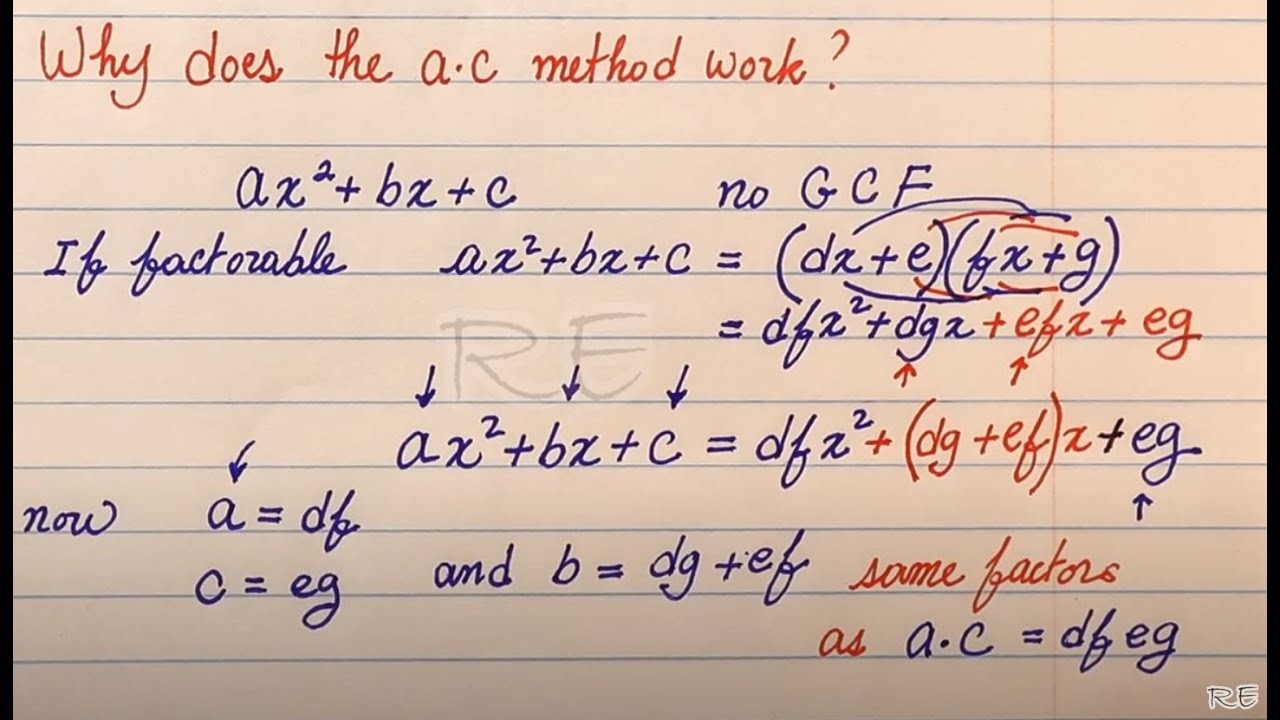 Why does the a.c method work?
ax²+bx+c no GCF
If factorable ax²+bx+c = (dx+e)(fx+g)
= dfx²+dgx+efx+eg
RE
↓ ↓ ↓ ↑ ↑
ax²+bx+c = dfx²+(dg+ef)x+eg
↓ ↑
now a = df
c = eg and b = dg+ef same factors
as a.c = dfeg
RE